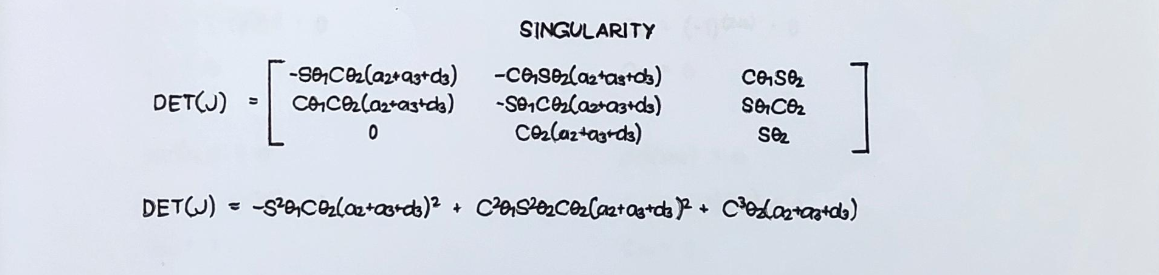 SINGULARITY
-Sθ1Cθ2(a2+a3+d3) -Cθ1Sθ2(a2+a3+d3) Cθ1Sθ2
DET(J) = Cθ1Cθ2(a2+a3+d3) -Sθ1Cθ2(a2+a3+d3) Sθ1Cθ2
0 Cθ2(a2+a3+d3) Sθ2
DET(J) = -S²θ1Cθ2(a2+a3+d3)² + C²θ1S²θ2Cθ2(a2+a3+d3)² + C³θ2(a2+a3+d3)